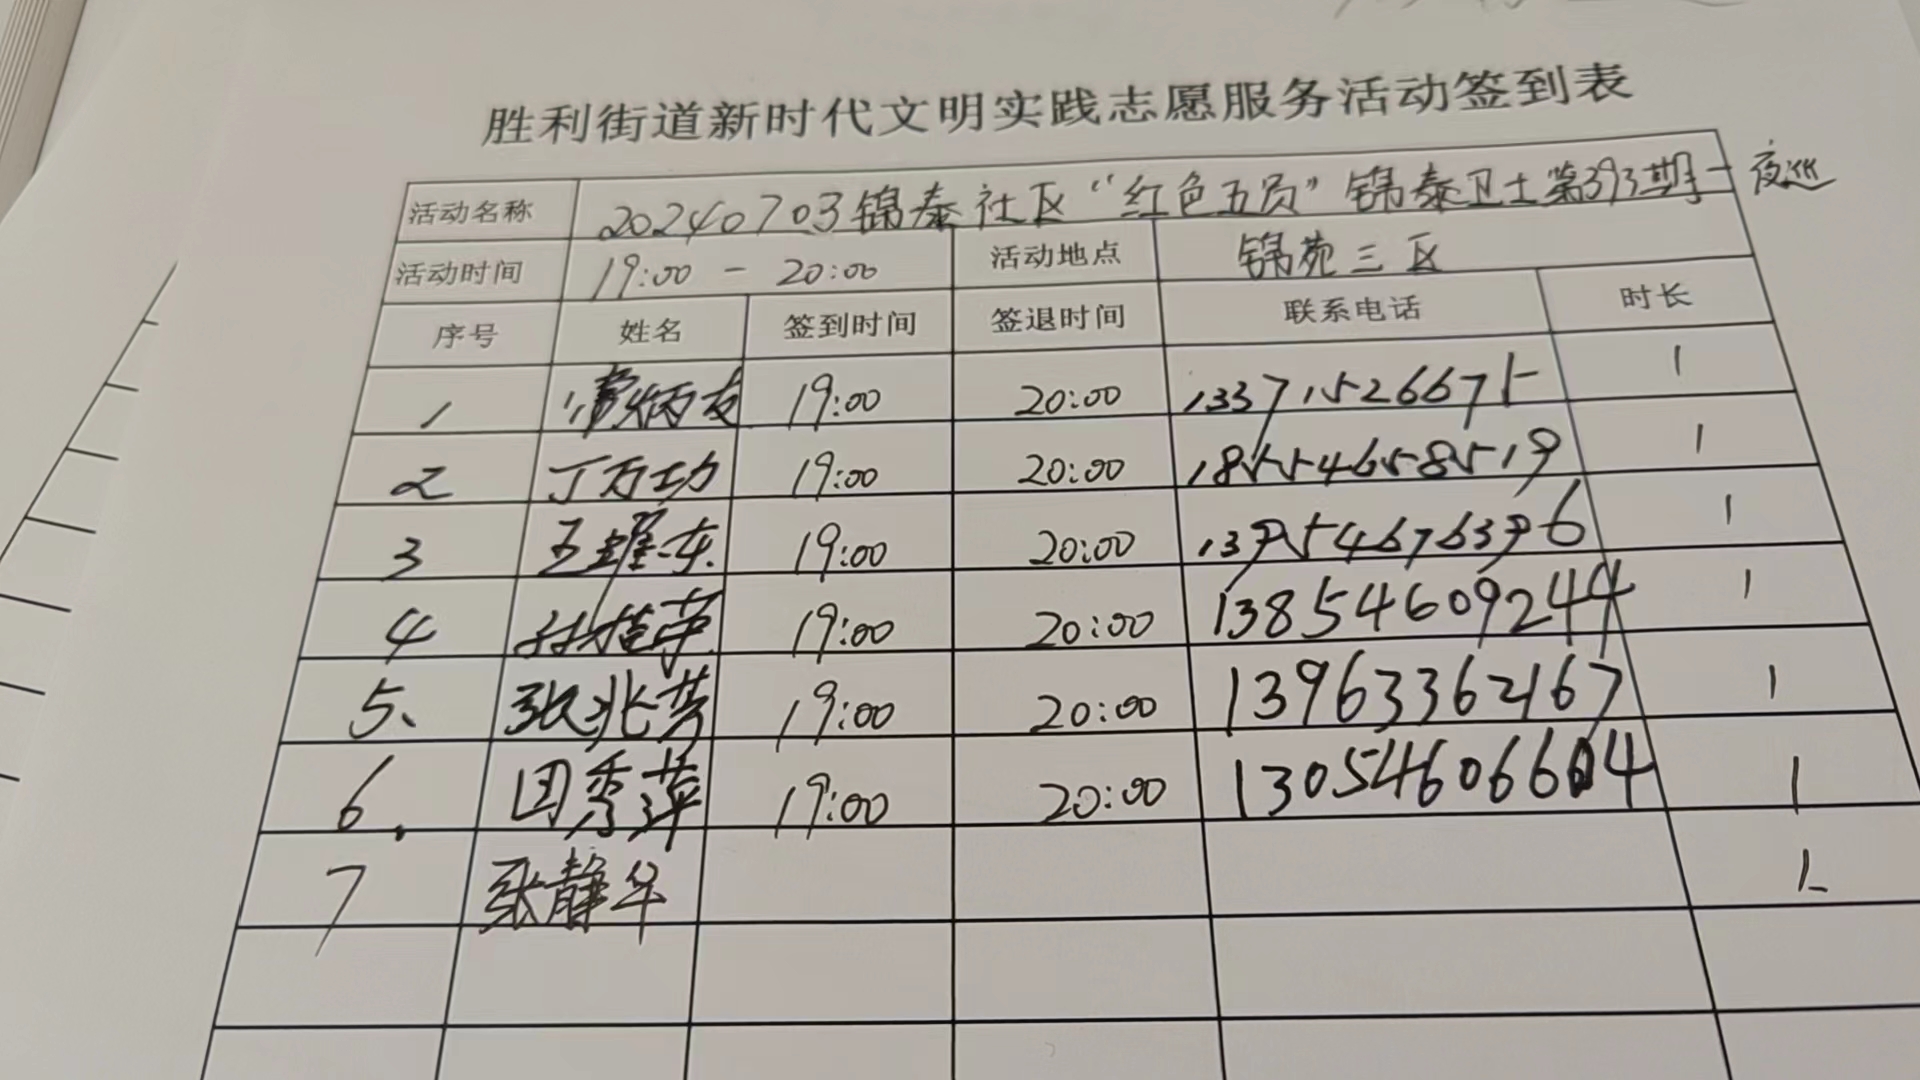 胜利街道新时代文明实践志愿服务活动签到表
活动名称 20240703锦泰社区“红色五员”锦泰卫士第393期-夜巡
活动时间 19:00 - 20:00 活动地点 锦苑三区
序号 姓名 签到时间 签退时间 联系电话 时长
1 炳友 19:00 20:00 13371526671 1
2 丁万功 19:00 20:00 18554658519 1
3 王耀东 19:00 20:00 1
4 孙桂英 19:00 20:00 13854609244 1
5、 张兆芳 19:00 20:00 13963362167 1
6. 田秀萍 19:00 20:00 13054606604 1
7 张静华 1